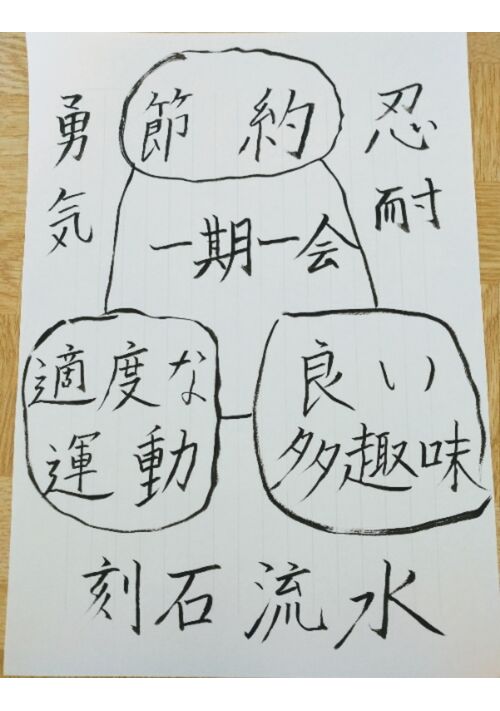 勇気
節約
忍耐
一期一会
適度な
運動
良い
多趣味
刻石流水